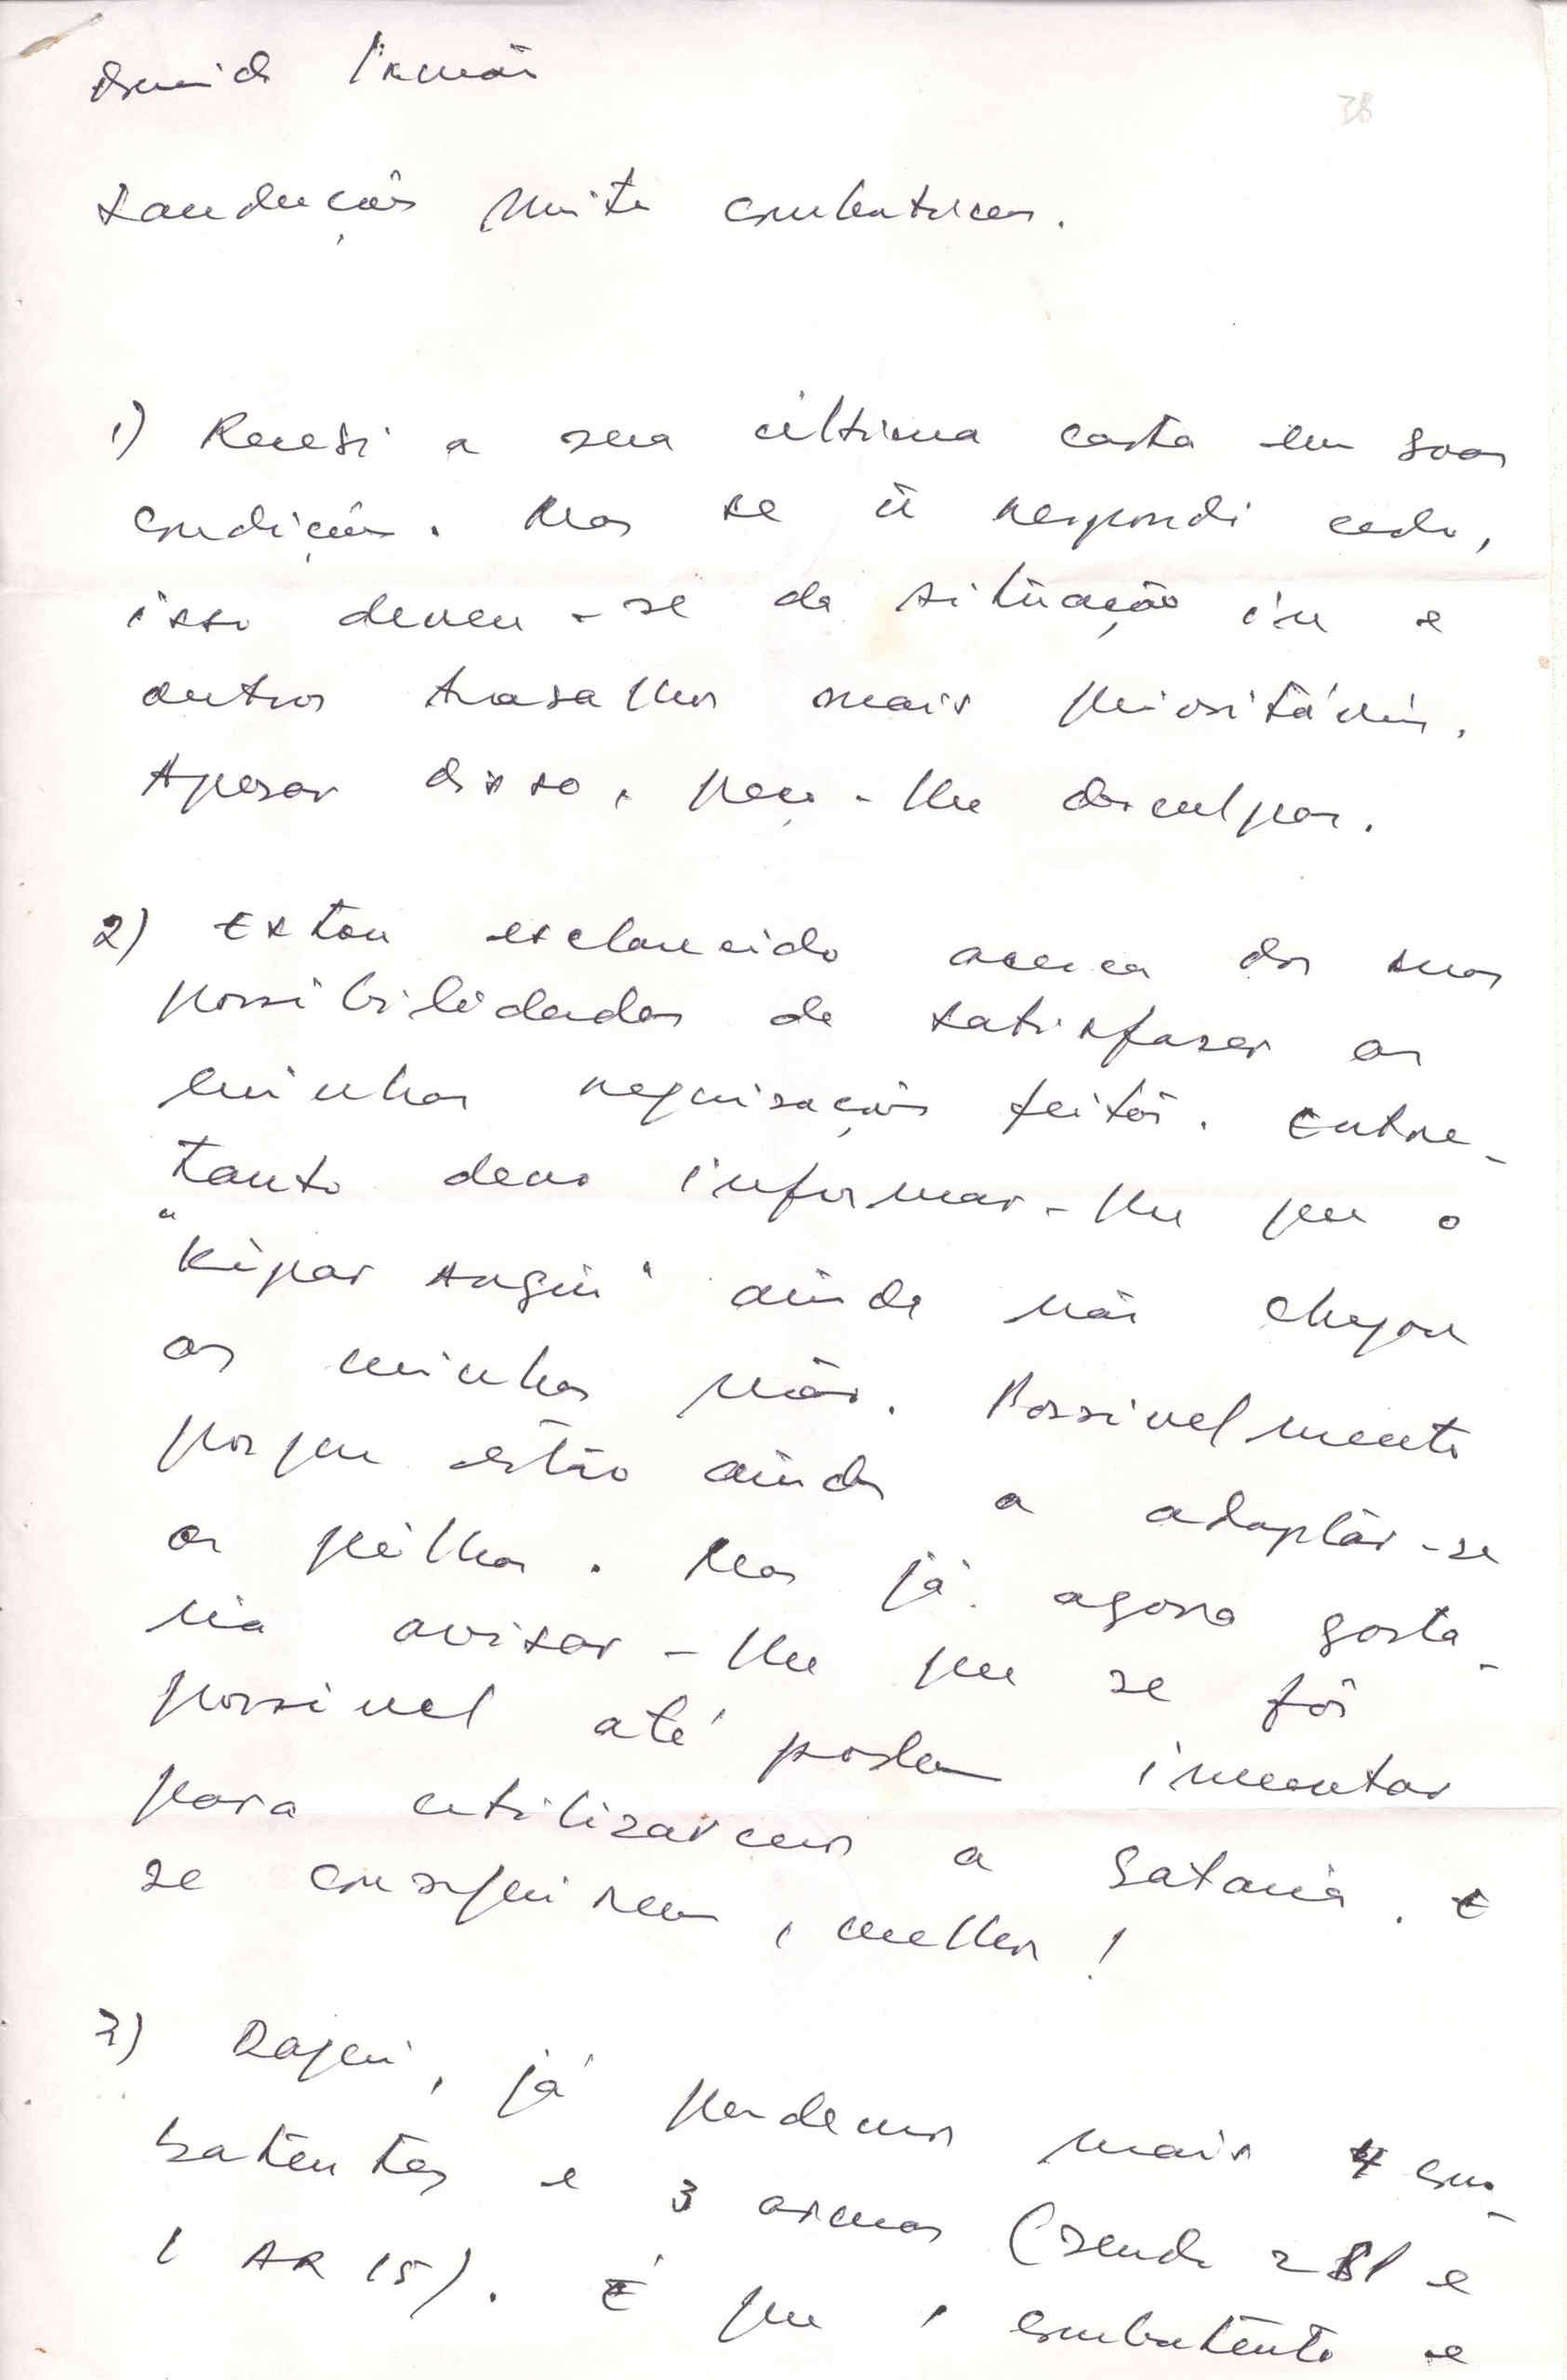 38
Irmão
Saudações muito combativas.
1) Recebi a sua última carta em boas
condições. Mas se ñ respondi cedo,
isso deveu-se da sitüação i'u e
outros trabalhos mais prioritários.
Apesar disso, peço-lhe desculpas.
2) Estou esclarecido acerca das suas
possibilidades de satisfazer as
minhas requisações feitas. Entre-
tanto devo informar-lhe que o
" ainda não chegou
as minhas mãos. Possivelmente
porque estão ainda a adaptár-se
as pilhas. Mas já agora gosta-
ria avisar-lhe que se fôr
possivel até podem inventar
para utilizarmos a bataria. E
se conseguirem, melhor!
3) Daqui, já perdemos mais 4 com-
batentes e 3 armas (sendo 2 e
1 AR 15). É que 1 combatente e